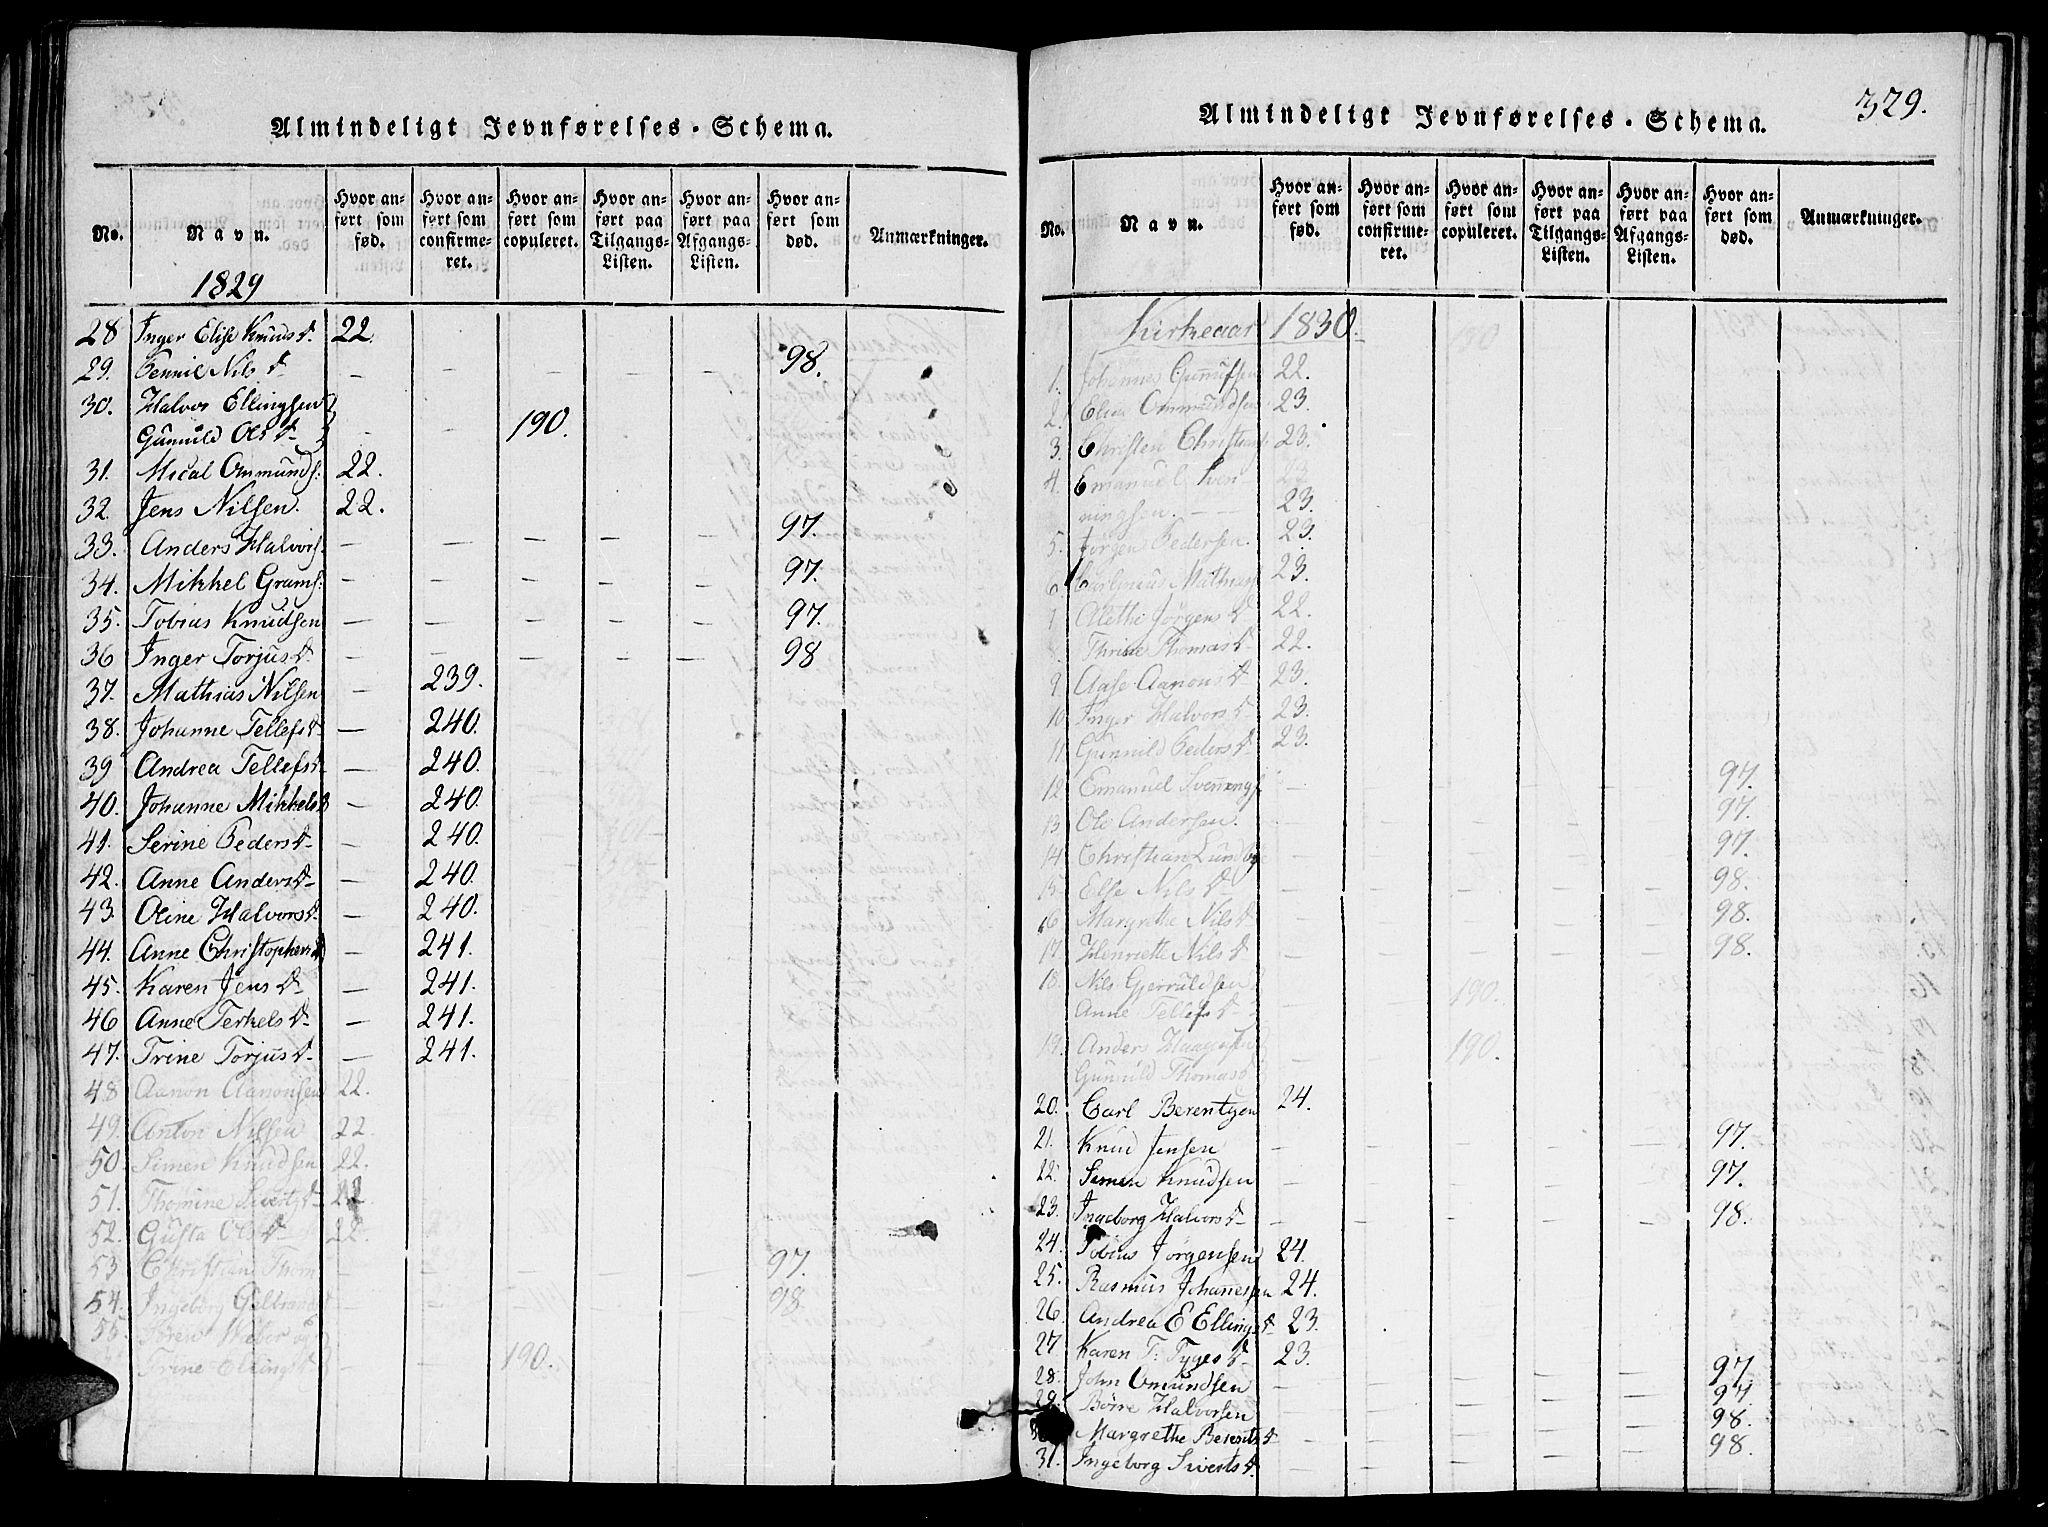 Almindeligt Jevnførelses-Schema.
No. Navn. Hvor anført som fød. Hvor anført som confirmeret. Hvor anført som copuleret. Hvor anført paa Tilgangs-Listen. Hvor anført paa Afgangs-Listen. Hvor anført som død. Anmærkninger.
1829
28 Inger Elise Knuds d. 22.
29. Pennil Nils d - - - - - 98.
30. Halvor Ellingsen
Gunnild Ols d - - 190.
31. Mical Ommunds. 22.
32. Jens Nilsen. 22.
33. Anders Halvors. - - - - - 97.
34. Mikkel Grams. - - - - - 97.
35. Tobias Knudsen - - - - - 97.
36 Inger Torjus d. - - - - - 98
37. Mathias Nilsen - 239.
38. Johanne Tellefs d - 240.
39 Andrea Tellefs d - 240.
40. Johanne Mikkels d - 240.
41. Serine Peders d - 240.
42. Anne Anders d - 240.
43. Oline Halvors d - 240.
44. Anne Christophers d - 241.
45. Karen Jens d - 241.
46 Anne Terkels d - 241.
47. Trine Torjus d - 241.
48 Aanon Aanonsen 22.
49. Anton Nilsen 22.
50. Simen Knudsen 22.
51. Thomine Siverts d 22
52. Gusta Ols d 22.
53 Christian Thom - - - - - 97.
54. Ingeborg - - - - - 98.
55. Søren Weber og
Trine Ellings d - - 190.
Almindeligt Jevnførelses-Schema.
329.
No. Navn. Hvor anført som fød. Hvor anført som confirmeret. Hvor anført som copuleret. Hvor anført paa Tilgangs-Listen. Hvor anført paa Afgangs-Listen. Hvor anført som død. Anmærkninger.
Kirkeaar 1830.
1. Johannes Gunnufsen 22.
2. Elias Ommundsen 23.
3. Christen Christians. 23.
4. Emanuel Sven- 23
ningsen. - - - 23.
5. Jørgen Pedersen. 23.
6 Mathias 23.
7 Alethe Jørgens d 22.
8. Thrine Thomas d 22.
9 Aase Aanons d 23.
10. Inger Halvors d 23.
11. Gunnild Peders d 23.
12 Emanuel Svennings. - - - - - 97.
13 Ole Andersen. - - - - - 97.
14. Christian Lundbye - - - - - 97.
15 Else Nils d - - - - - 98.
16 Margrethe Nils d - - - - - 98.
17. Henriette Nils d - - - - - 98.
18. Nils Gjeruldsen
Anne Tellefs d - - 190.
19. Anders
Gunnild Thomas d - - 190.
20. Carl Berentzen 24.
21. Knud Jensen - - - - - 97.
22. Simen Knudsen - - - - - 97.
23. Ingeborg Halvors d - - - - - 98.
24. Tobias Jørgensen 24.
25. Rasmus Johannesen 24.
26. Andrea E Ellings d 23.
27 Karen T: Tyges d 23.
28. John Omundsen - - - - - 97
29. Børre Halvorsen - - - - - 97.
Margrethe Berents d - - - - - 98.
31. Ingeborg Siverts d. - - - - - 98.